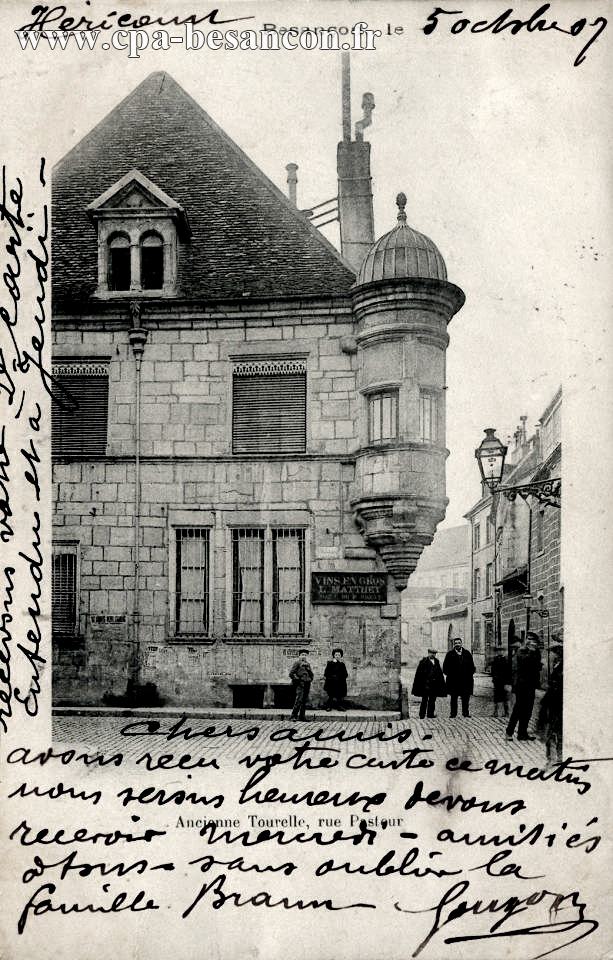 Héricourt Besançon, le 5 octobre 07
www.cpa-besancon.fr
VINS EN GROS
L. MATTHEY
Ancienne Tourelle, rue Pasteur
Chers amis.
avons reçu votre carte ce matin
nous serons heureux de vous
recevoir mercredi - amitiés
à tous - sans oublier la
famille Braun -
recevons votre 2e carte
Entendu et à Jeudi -